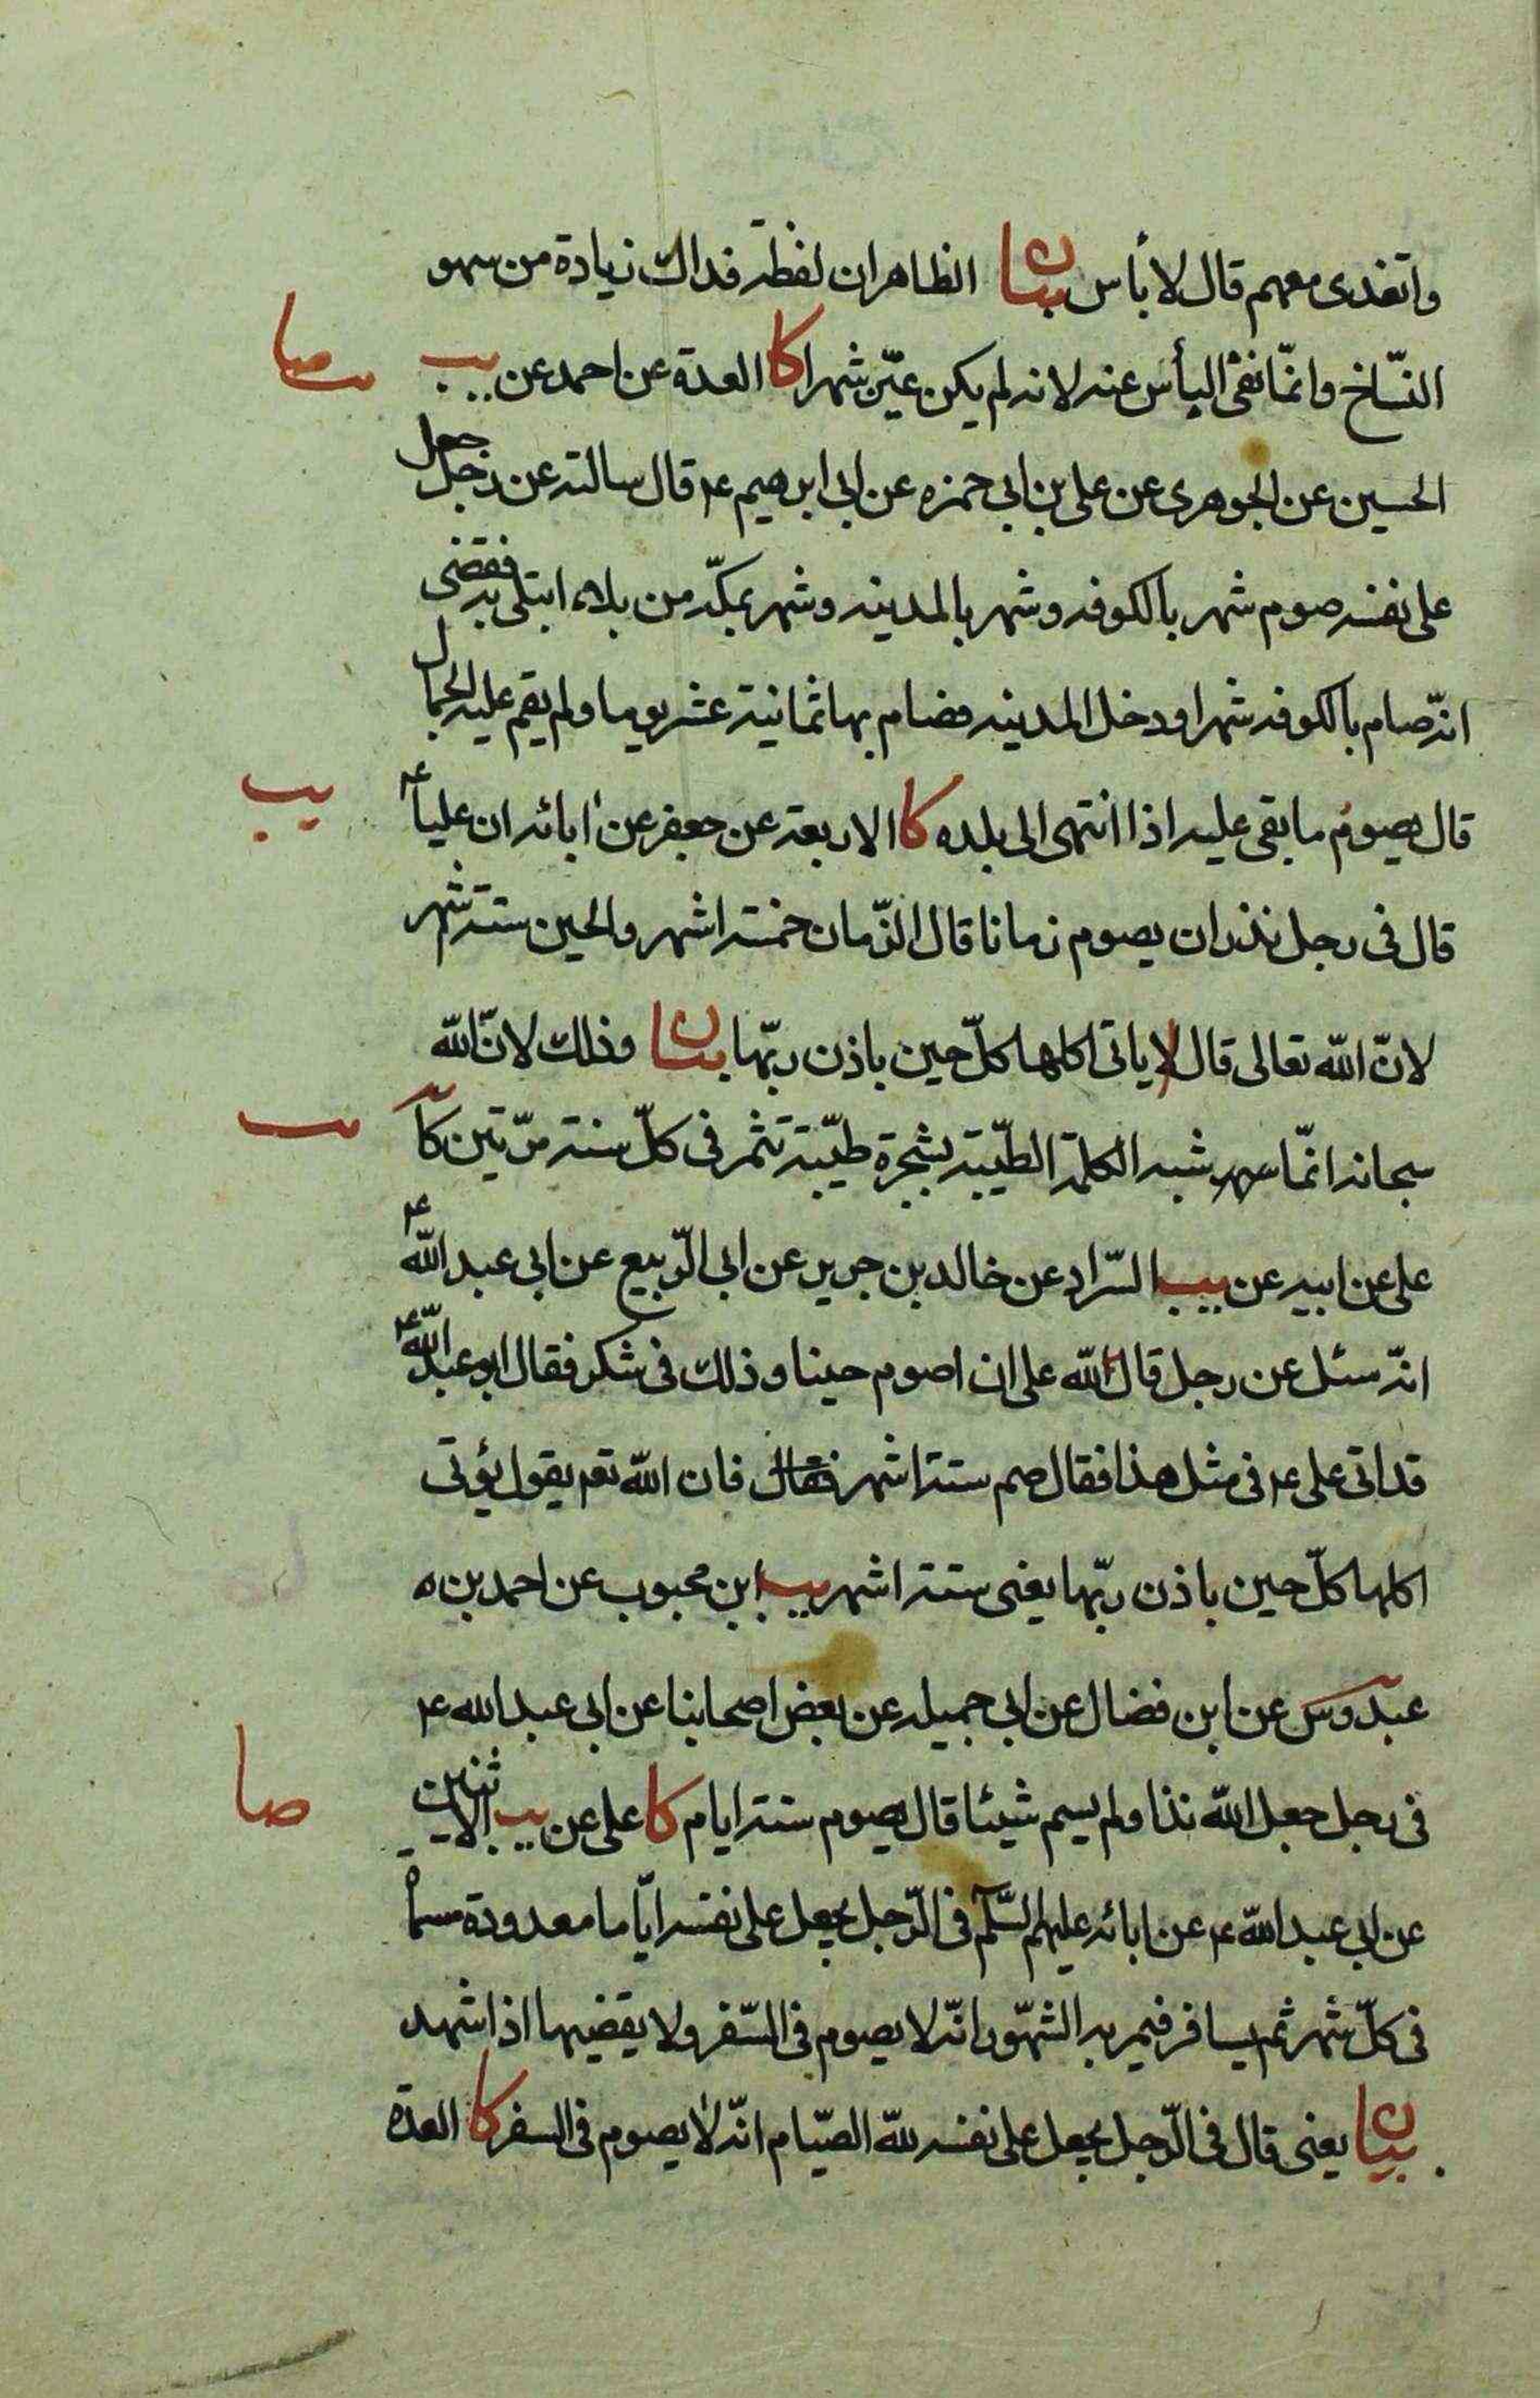 واتغدى معهم قال لا بأس بيان الظاهر ان لفظة فداك زيادة من سهو
النسّاخ وانمّا نفى البأس عنه لانه لم يكن عيّن شهرا كا العدة عن احمد عن يب
صا
الحسين عن الجوهرى عن على بن ابى حمزه عن ابى ابرهيم ع قال سالته عن رجل جعل
على نفسه صوم شهر بالكوفه وشهر بالمدينه وشهر بمكّه من بلاء ابتلى به فقضى
انّه صام بالكوفه شهرا ودخل المدينه فصام بها ثمانية عشر يوما ولم يقم عليه الجمال
قال يصوم ما بقى عليه اذا انتهى الى بلده كا الاربعة عن جعفر عن ابائه ان عليا ع
يب
قال فى رجل نذر ان يصوم زمانا قال الزّمان خمسة اشهر والحين ستة اشهر
لانّ الله تعالى قال لا ياتى اكلها كلّ حين باذن ربّها بيان وذلك لانّ الله
سبحانه انمّا شبه الكلمة الطيّبة بشجرة طيّبة تثمر فى كلّ سنة مرّتين كا
على عن ابيه عن يب السّراد عن خالد بن جرير عن ابى الرّبيع عن ابى عبد الله ع
انّه سئل عن رجل قال لله على ان اصوم حينا وذلك فى شكر فقال ابو عبد الله ع
قد اتى على ع فى مثل هذا فقال صم ستة اشهر فقال فان الله تعم يقول يؤتى
اكلها كلّ حين باذن ربّها يعنى ستة اشهر يب ابن محبوب عن احمد بن
عبدوس عن ابن فضال عن ابى جميله عن بعض اصحابنا عن ابى عبد الله ع
فى رجل جعل لله نذا ولم يسم شيئا قال يصوم ستة ايام كا على عن يب الاثنين
صا
عن ابى عبد الله ع عن ابائه عليهم السّلم فى الرّجل يجعل على نفسه ايّاما معدودة مسماة
فى كلّ شهر ثم يسافر فيمر به الشهّور انّه لا يصوم فى السّفر ولا يقضيها اذا شهد
بيان يعنى قال فى الرّجل يجعل على نفسه لله الصيّام انّه لا يصوم فى السفر كا العدة